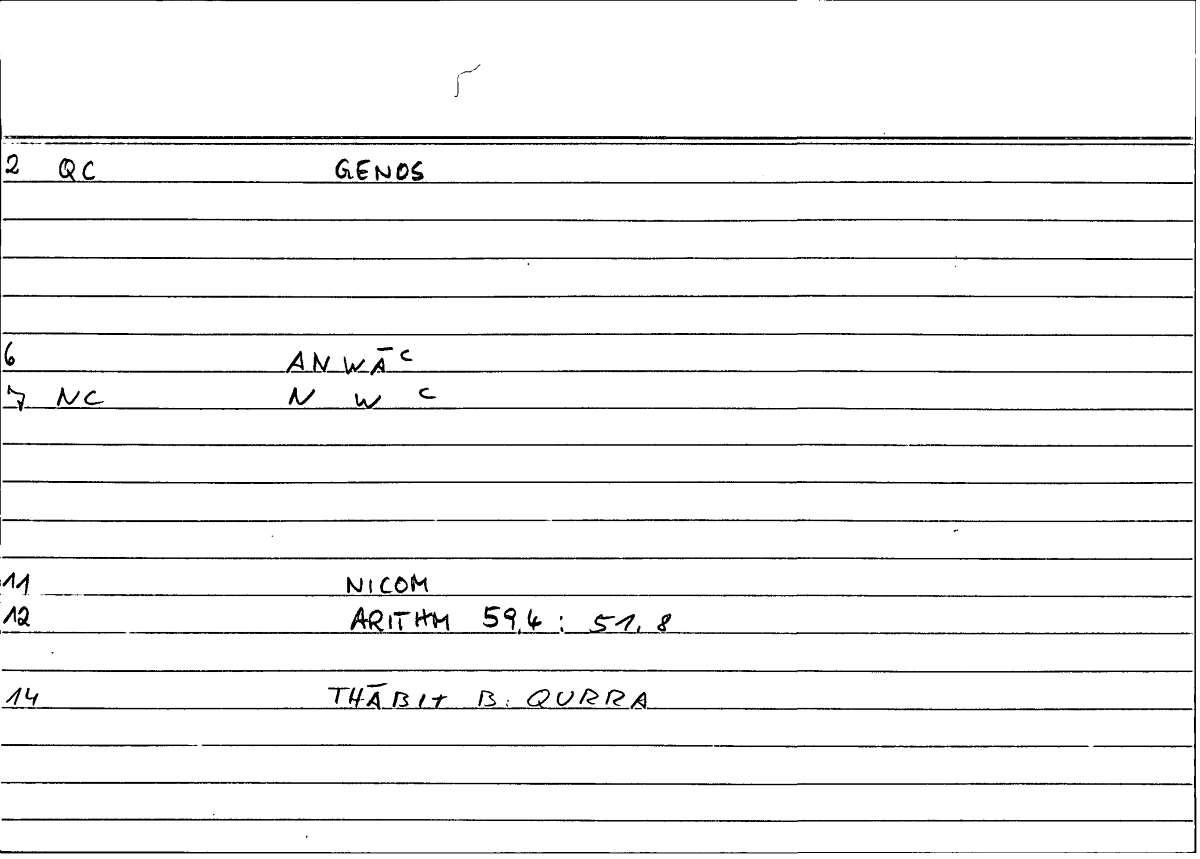 2 QC GENOS
6 ANWĀʿ
7 NC N W ʿ
11 NICOM
12 ARITHM 59,4 : 51,8
14 THĀBIT B. QURRA